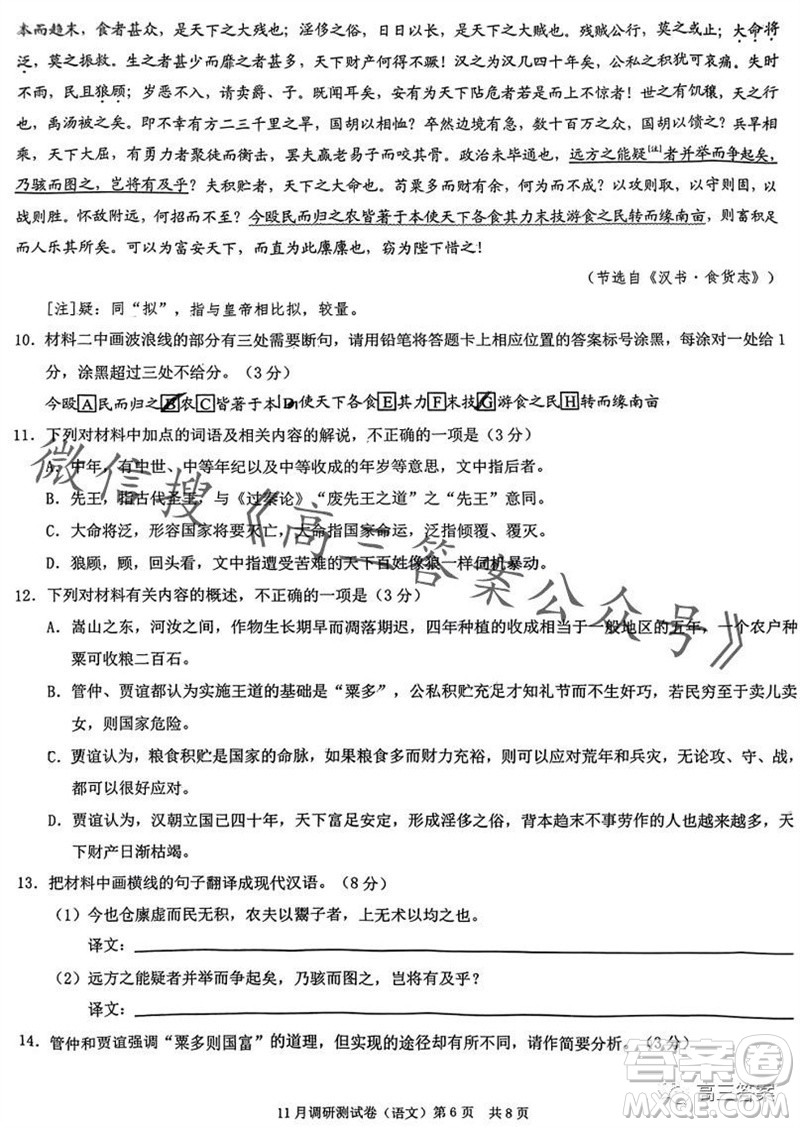 本而趋末，食者甚众，是天下之大残也；淫侈之俗，日日以长，是天下之大贼也。残贼公行，莫之或止；大命将
泛，莫之振救。生之者甚少而靡之者甚多，天下财产何得不蹶！汉之为汉几四十年矣，公私之积犹可哀痛。失时
不雨，民且狼顾；岁恶不入，请卖爵、子。既闻耳矣，安有为天下阽危者若是而上不惊者！世之有饥穰，天之行
也，禹汤被之矣。即不幸有方二三千里之旱，国胡以相恤？卒然边境有急，数十百万之众，国胡以馈之？兵旱相
乘，天下大屈，有勇力者聚徒而衡击，罢夫羸老易子而咬其骨。政治未毕通也，远方之能疑[注]者并举而争起矣，
乃骇而图之，岂将有及乎？夫积贮者，天下之大命也。苟粟多而财有余，何为而不成？以攻则取，以守则固，以
战则胜。怀敌附远，何招而不至？今殴民而归之农皆著于本使天下各食其力末技游食之民转而缘南亩，则畜积足
而人乐其所矣。可以为富安天下，而直为此廪廪也，窃为陛下惜之！
（节选自《汉书·食货志》）
[注]疑：同“拟”，指与皇帝相比拟，较量。
10．材料二中画波浪线的部分有三处需要断句，请用铅笔将答题卡上相应位置的答案标号涂黑，每涂对一处给1
分，涂黑超过三处不给分。（3分）
今殴A民而归之B农C皆著于本D使天下各食E其力F末技G游食之民H转而缘南亩
11．下列对材料中加点的词语及相关内容的解说，不正确的一项是（3分）
A．中年，有中世、中等年纪以及中等收成的年岁等意思，文中指中等收成的年岁。
B．先王，指古代圣王，与《过秦论》“废先王之道”之“先王”意同。
C．大命将泛，形容国家将要灭亡，大命指国家命运，泛指倾覆、覆灭。
D．狼顾，顾，回头看，文中指遭受苦难的天下百姓像狼一样伺机暴动。
12．下列对材料有关内容的概述，不正确的一项是（3分）
A．嵩山之东，河汝之间，作物生长期早而凋落期迟，四年种植的收成相当于一般地区的五年，一个农户种
粟可收粮二百石。
B．管仲、贾谊都认为实施王道的基础是“粟多”，公私积贮充足才知礼节而不至于卖儿卖
女，否则国家危险。
C．贾谊认为，粮食积贮是国家的命脉，如果粮食财力充裕，则可以应对荒年和兵灾，无论攻、守、战，
都能成功。
D．贾谊认为，汉朝立国已四十年，天下富足安定，淫侈之俗，背本趋末不事劳作的人也越来越多，
天下财产日渐枯竭。
13．把材料中画横线的句子翻译成现代汉语。（8分）
（1）今也仓廪虚而民无积，农夫以鬻子者，上无术以均之也。
译文：
（2）远方之能疑者并举而争起矣，乃骇而图之，岂将有及乎？
译文：
14．管仲和贾谊强调“粟多则国富”的道理，但实现的途径却有所不同，请作简要分析。（3分）
11月调研测试卷（语文）第6页 共8页
微信搜《高三答案公众号》
答案卷
高三答案